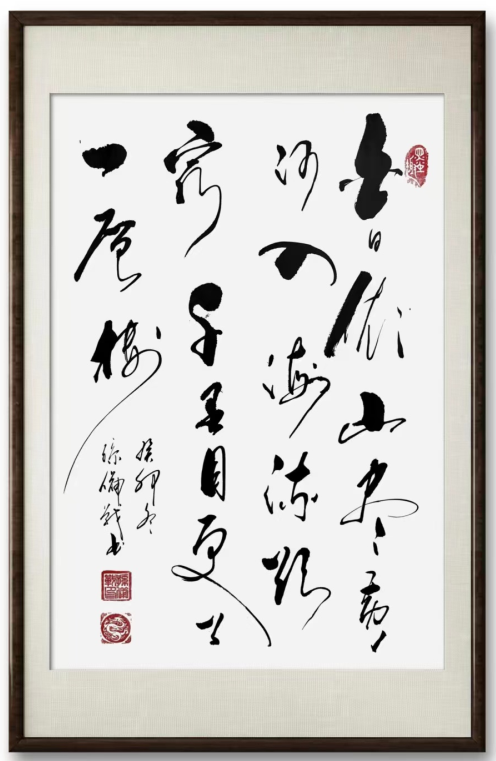 白日依山尽黄
河入海流欲
穷千里目更上
一层楼
癸卯冬